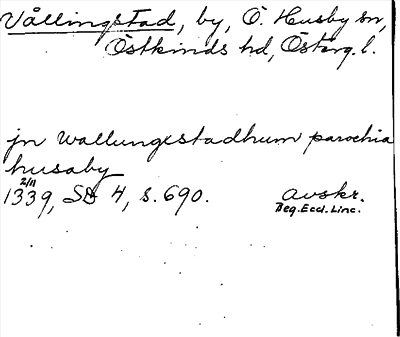 Vållingstad, by, Ö. Husby sn,
Östkinds hd, Österg. l.
jn Wallungestadhum parochia
husaby
2/11
1339, SD 4, s. 690. avskr.
Reg. Eccl. Linc.